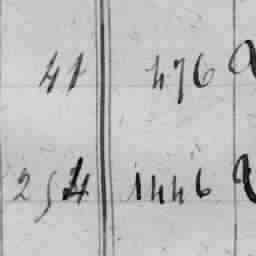 41 476
254 1446